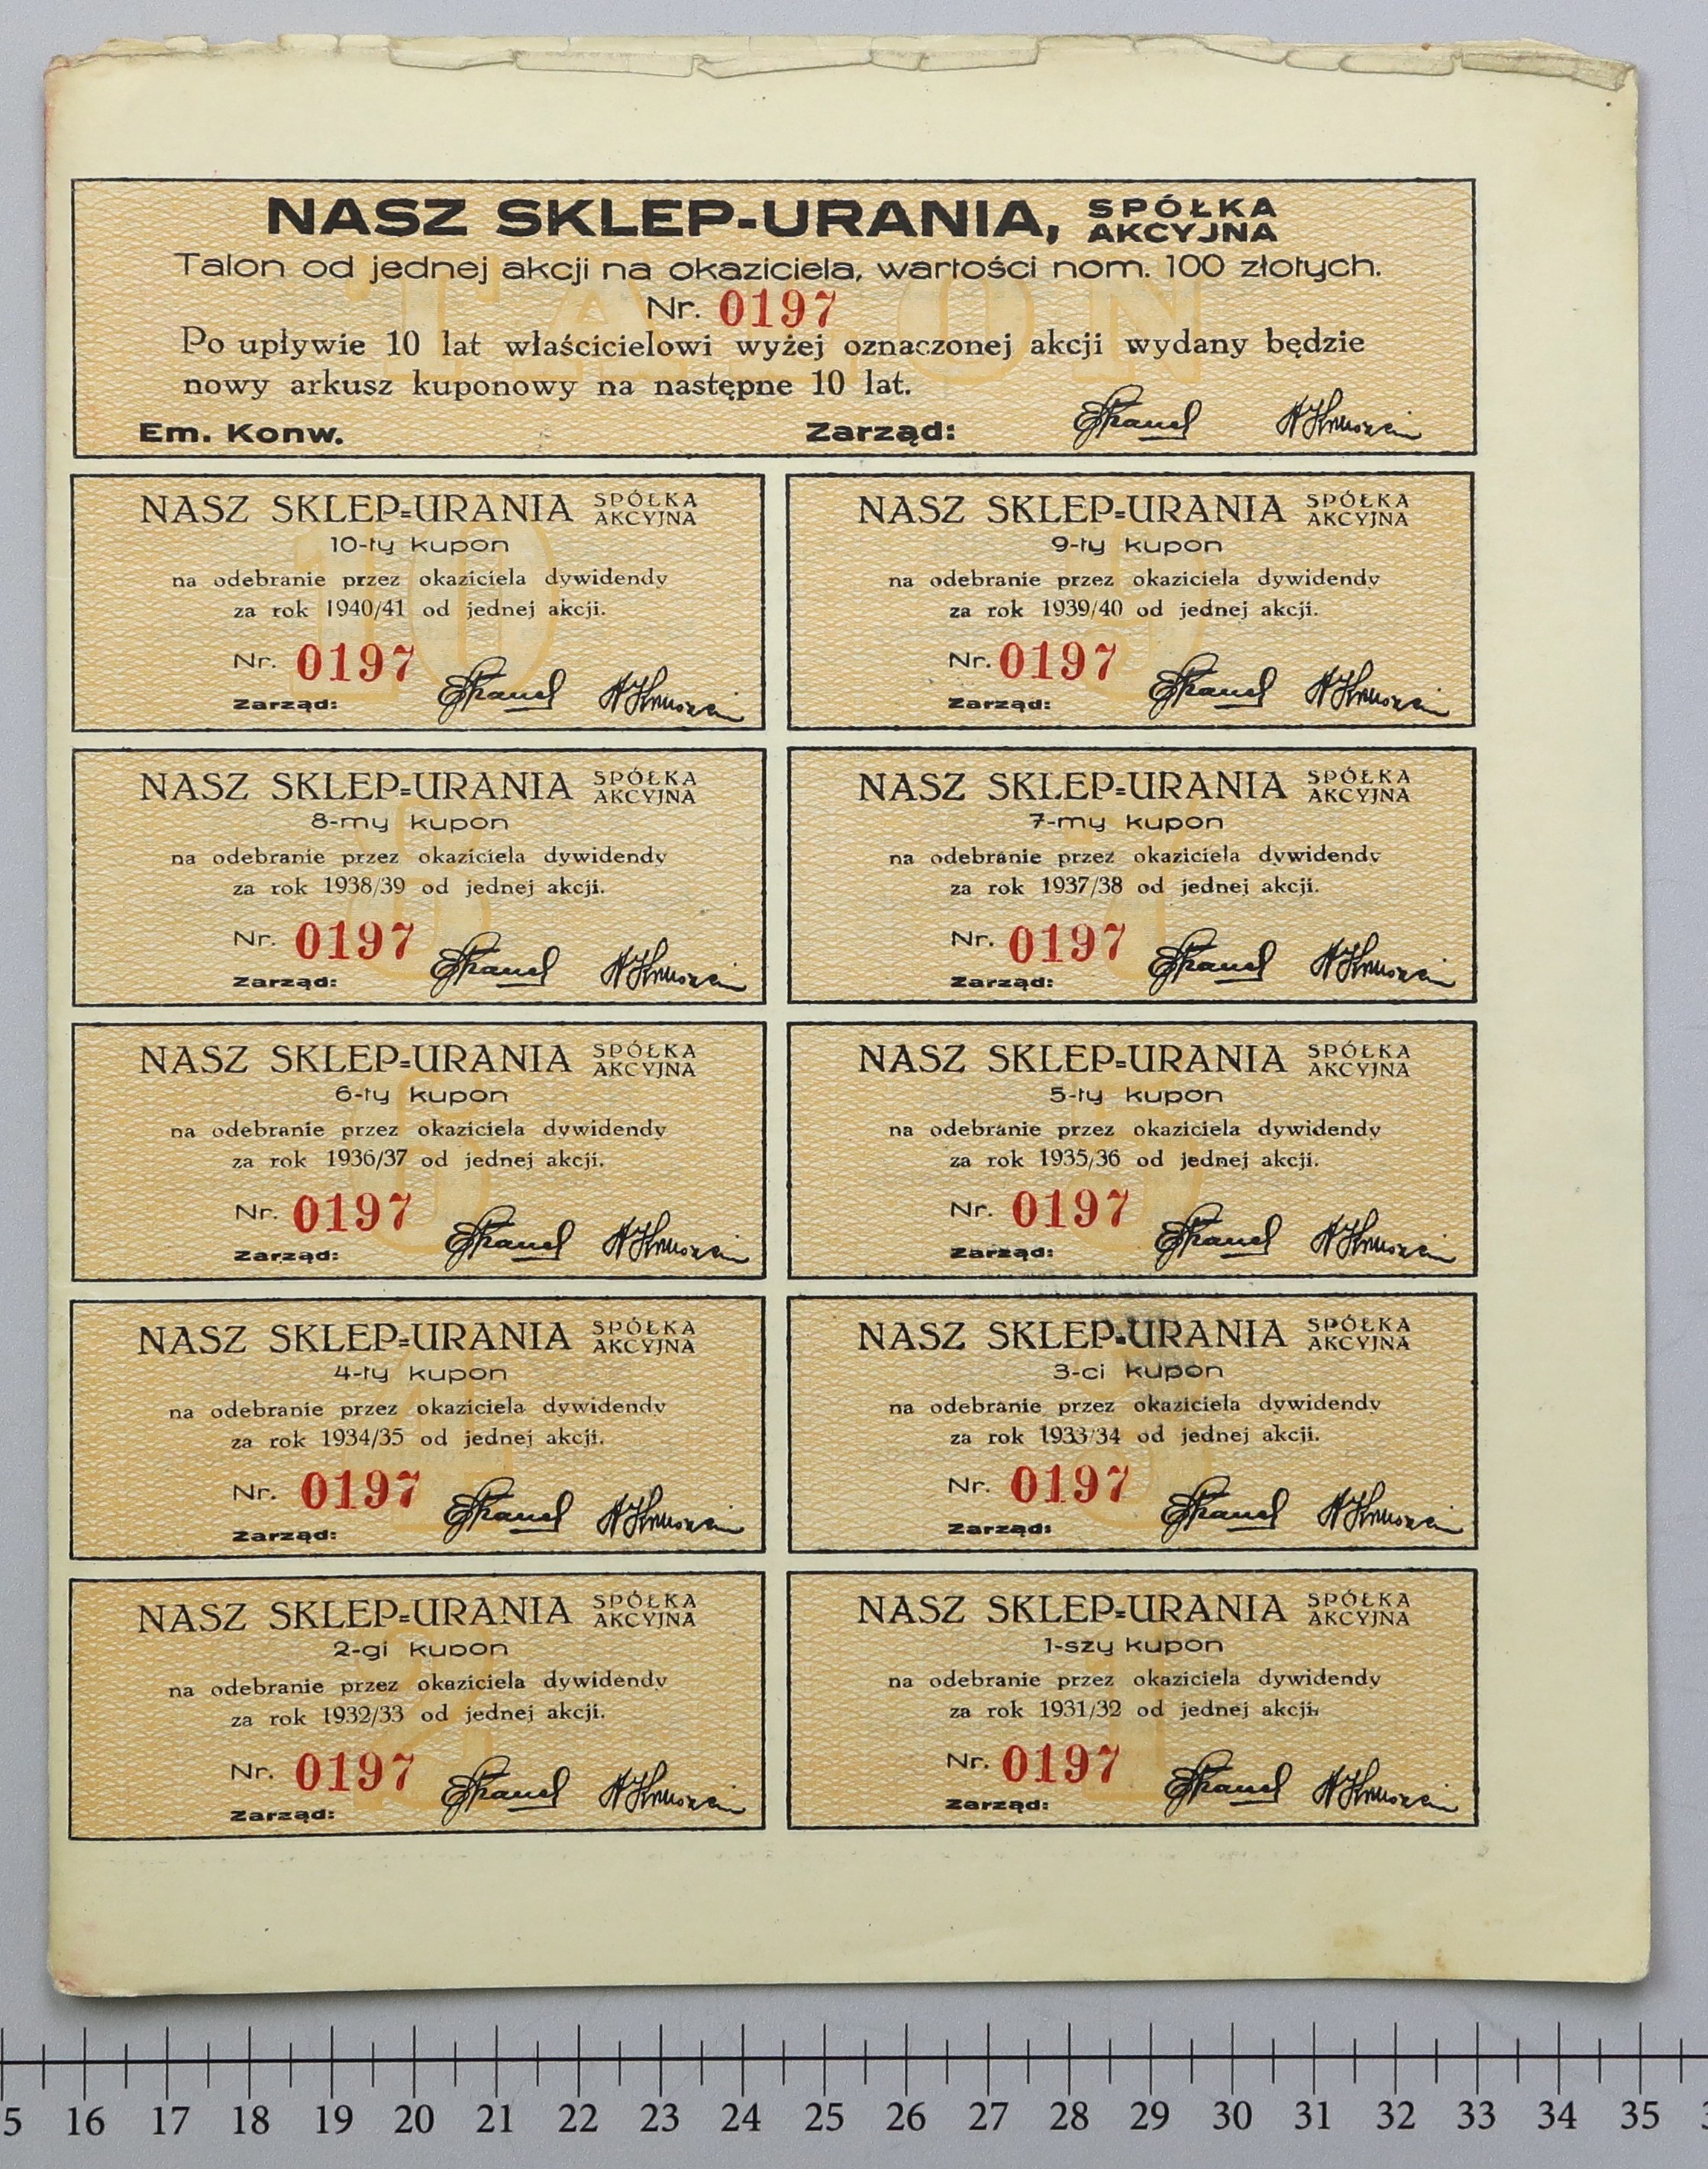 NASZ SKLEP-URANIA, SPÓŁKA AKCYJNA
Talon od jednej akcji na okaziciela, wartości nom. 100 złotych.
Nr. 0197
Po upływie 10 lat właścicielowi wyżej oznaczonej akcji wydany będzie
nowy arkusz kuponowy na następne 10 lat.
Em. Konw. Zarząd:
TALON
NASZ SKLEP-URANIA SPÓŁKA AKCYJNA
10-ty kupon
na odebranie przez okaziciela dywidendy
za rok 1940/41 od jednej akcji.
Nr. 0197
Zarząd:
10
NASZ SKLEP-URANIA SPÓŁKA AKCYJNA
9-ty kupon
na odebranie przez okaziciela dywidendy
za rok 1939/40 od jednej akcji.
Nr. 0197
Zarząd:
9
NASZ SKLEP-URANIA SPÓŁKA AKCYJNA
8-my kupon
na odebranie przez okaziciela dywidendy
za rok 1938/39 od jednej akcji.
Nr. 0197
Zarząd:
8
NASZ SKLEP-URANIA SPÓŁKA AKCYJNA
7-my kupon
na odebranie przez okaziciela dywidendy
za rok 1937/38 od jednej akcji.
Nr. 0197
Zarząd:
7
NASZ SKLEP-URANIA SPÓŁKA AKCYJNA
6-ty kupon
na odebranie przez okaziciela dywidendy
za rok 1936/37 od jednej akcji.
Nr. 0197
Zarząd:
6
NASZ SKLEP-URANIA SPÓŁKA AKCYJNA
5-ty kupon
na odebranie przez okaziciela dywidendy
za rok 1935/36 od jednej akcji.
Nr. 0197
Zarząd:
5
NASZ SKLEP-URANIA SPÓŁKA AKCYJNA
4-ty kupon
na odebranie przez okaziciela dywidendy
za rok 1934/35 od jednej akcji.
Nr. 0197
Zarząd:
4
NASZ SKLEP-URANIA SPÓŁKA AKCYJNA
3-ci kupon
na odebranie przez okaziciela dywidendy
za rok 1933/34 od jednej akcji.
Nr. 0197
Zarząd:
3
NASZ SKLEP-URANIA SPÓŁKA AKCYJNA
2-gi kupon
na odebranie przez okaziciela dywidendy
za rok 1932/33 od jednej akcji.
Nr. 0197
Zarząd:
2
NASZ SKLEP-URANIA SPÓŁKA AKCYJNA
1-szy kupon
na odebranie przez okaziciela dywidendy
za rok 1931/32 od jednej akcji.
Nr. 0197
Zarząd:
1
5 16 17 18 19 20 21 22 23 24 25 26 27 28 29 30 31 32 33 34 35